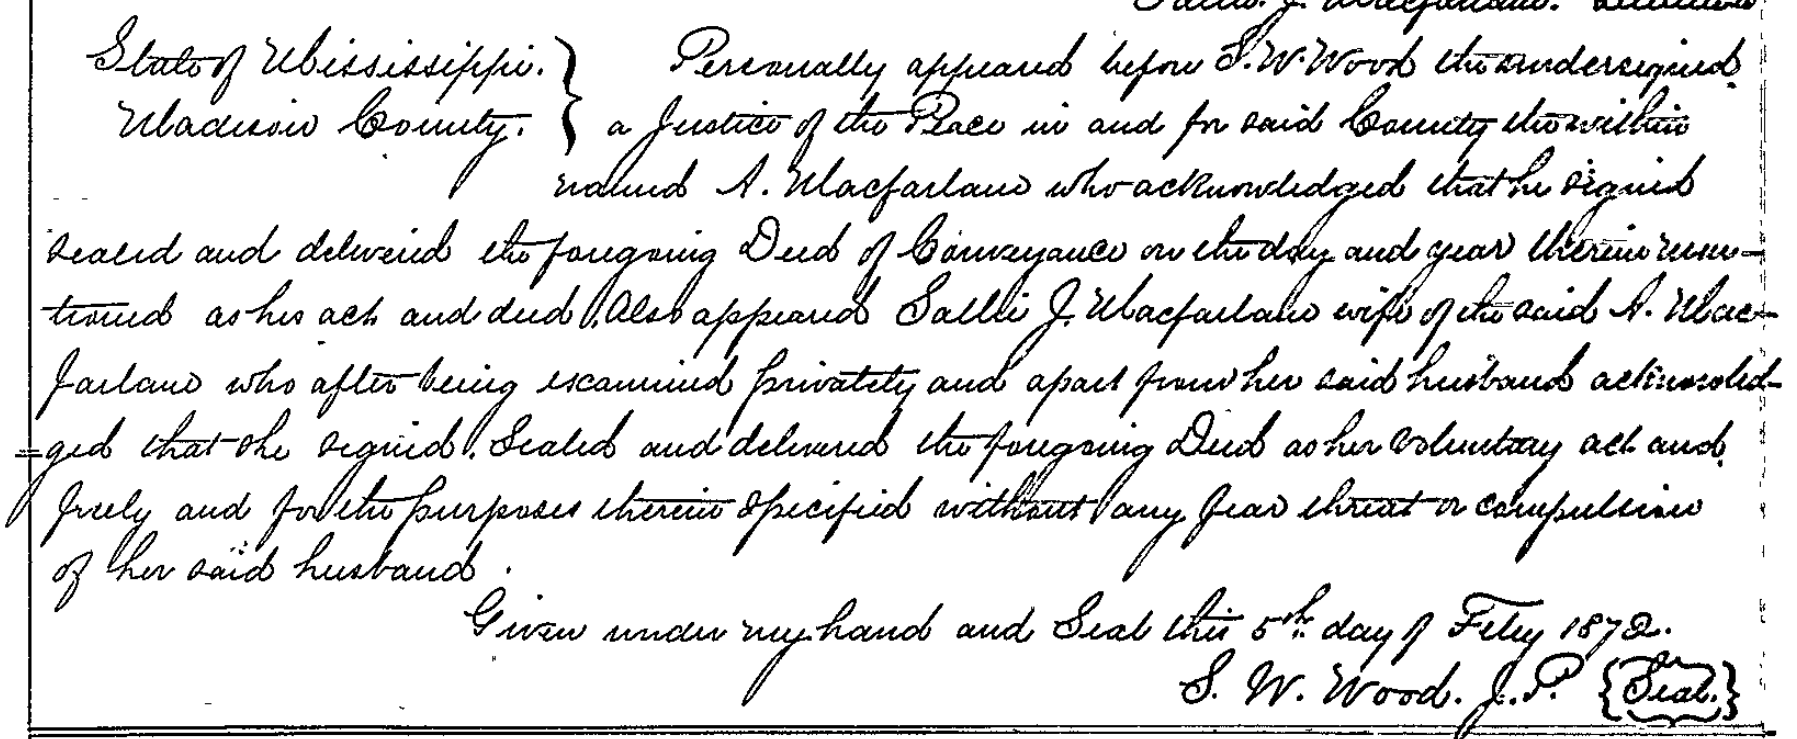 Sallie. J. Macfarlane.
State of Mississippi. } Personally appeared before S. W. Wood the undersigned
Madison County. } a Justice of the Peace in and for said County the within
named A. Macfarlane who acknowledged that he signed
sealed and delivered the foregoing Deed of Conveyance on the day and year therein men-
tioned as his act and deed. Also appeared Sallie J. Macfarlane wife of the said A. Mac-
farlane who after being examined privately and apart from her said husband acknowled-
=ged that she signed. Sealed and delivered the foregoing Deed as her voluntary act and
freely and for the purposes therein specified without any fear threat or compulsion
of her said husband.
Given under my hand and Seal this 5th. day of Feby 1872.
S. W. Wood. J. P. {Seal.}